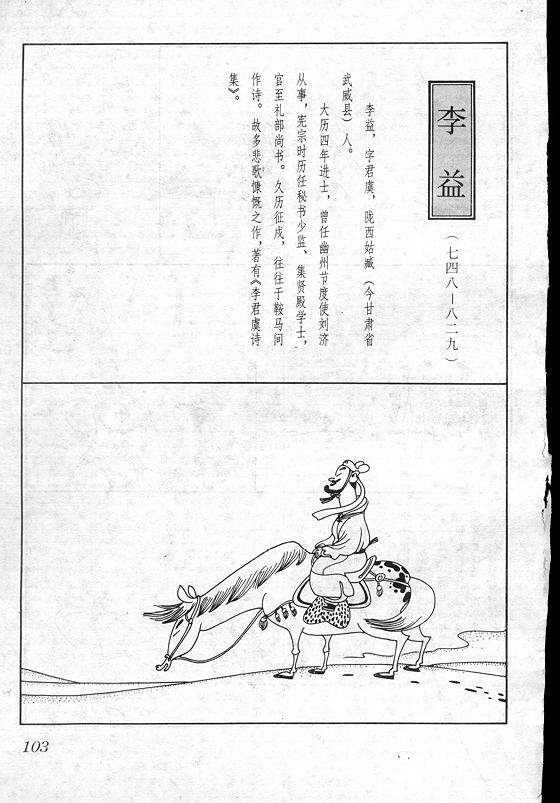 李益
（七四八－八二九）
李益，字君虞，陇西姑臧（今甘肃省
武威县）人。
大历四年进士，曾任幽州节度使刘济
从事，宪宗时历任秘书少监、集贤殿学士，
官至礼部尚书。久历征戍，往往于鞍马间
作诗。故多悲歌慷慨之作，著有《李君虞诗
集》。
103